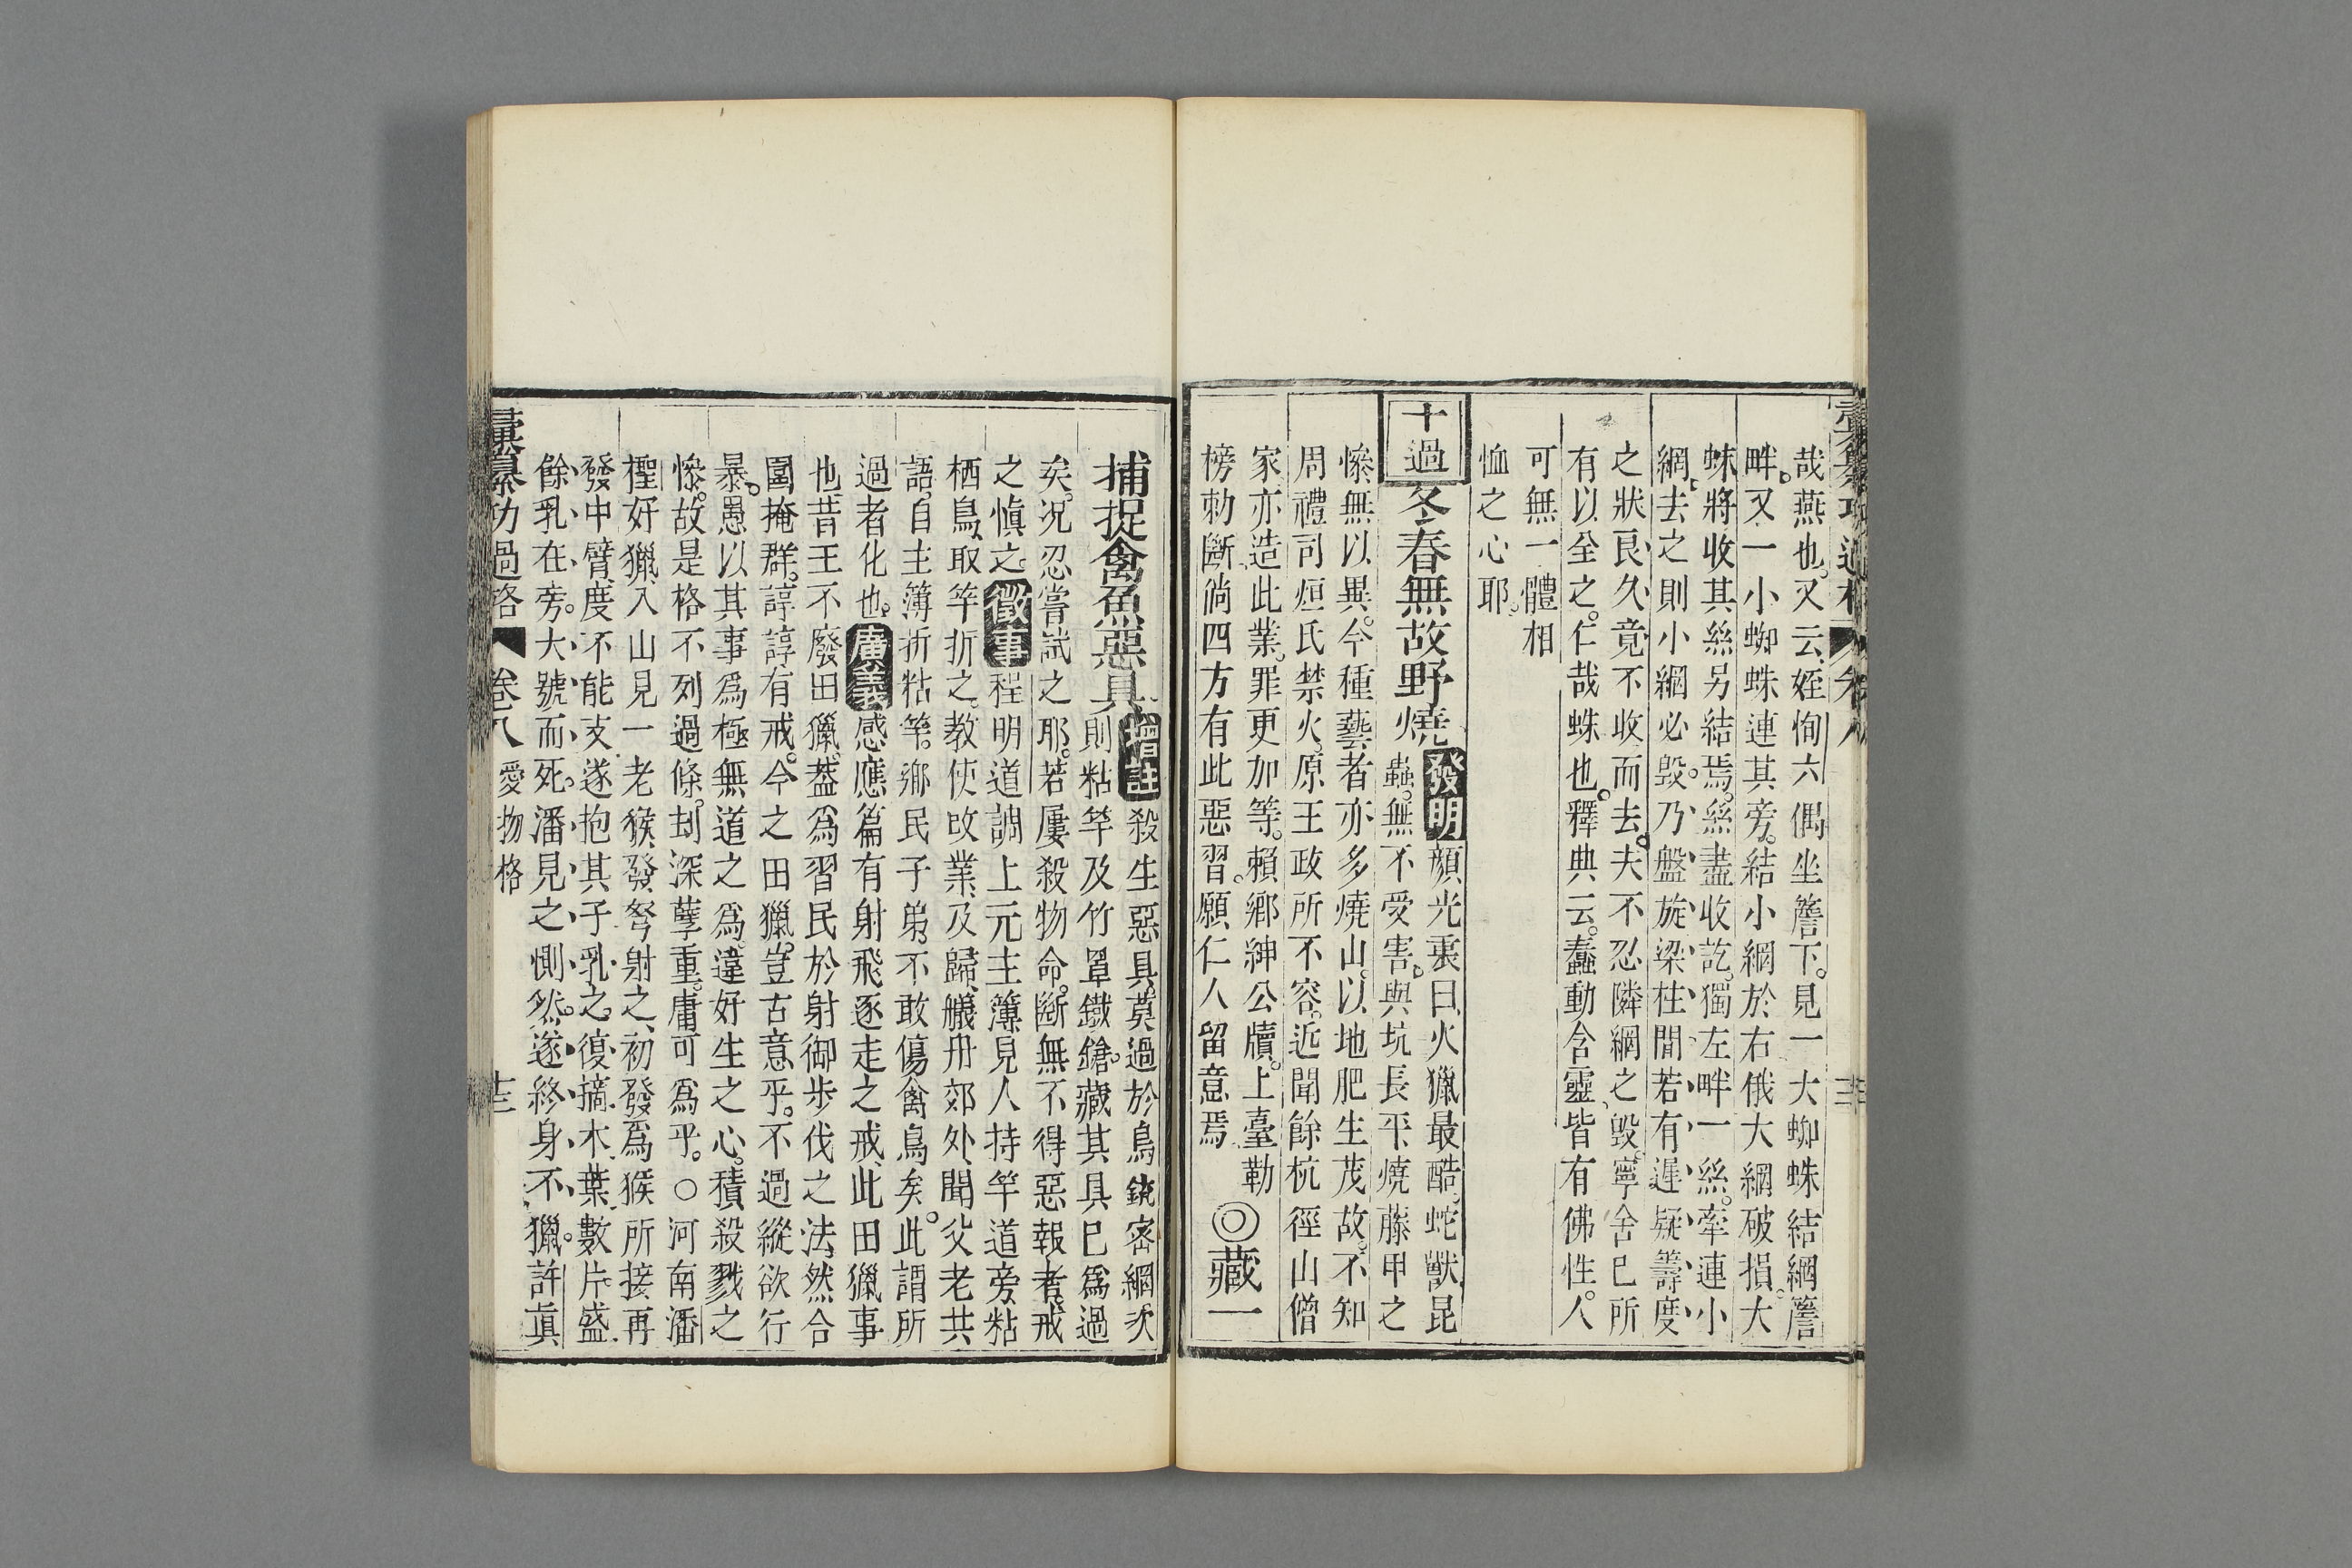 彙纂功過格 卷八
哉燕也。又云姪恂六偶坐簷下。見一大蜘蛛結網簷
畔。又一小蜘蛛連其旁。結小網於右俄大網破損。大
蛛將收其絲另結焉。絲盡收訖。獨左畔一絲。牽連小
網。去之則小網必毀。乃盤旋梁柱間若有遲疑籌度
之狀良久竟不收而去。夫不忍隣網之毀。寧舍已所
有以全之。仁哉蛛也。釋典云。蠢動含靈皆有佛性。人
可無一體相
恤之心耶。
十過
冬春無故野燒
發明
顏光衷曰火獵最酷。蛇獸昆
蟲。無不受害。與坑長平燒藤甲之
慘無以異。今種藝者亦多燒山。以地肥生茂故。不知
周禮司烜氏禁火。原王政所不容。近聞餘杭徑山僧
家亦造此業。罪更加等。賴鄉紳公牘。上臺勒
榜勅斷。倘四方有此惡習。願仁人留意焉。
◎藏一
捕捉禽魚惡具
增註
殺生惡具。莫過於鳥銃密網次
則粘竿及竹罩鐵鎗。藏其具已爲過
矣。況忍嘗試之耶。若屢殺物命。斷無不得惡報者。戒
之慎之。
徵事
程明道調上元主簿見人持竿道旁粘
栖鳥取竿折之。教使改業及歸艤舟郊外聞父老共
語。自主簿折粘竿。鄉民子弟不敢傷禽鳥矣。此謂所
過者化也。
廣義
感應篇有射飛逐走之戒此田獵事
也昔王不廢田獵。葢爲習民於射御步伐之法然合
圍掩群。諄諄有戒。今之田獵。豈古意乎。不過縱欲行
暴。愚以其事爲極無道之爲。違好生之心。積殺戮之
慘。故是格不列過條。刦深孽重。庸可爲乎。○河南潘
檉好獵入山見一老猴發弩射之初發爲猴所接再
發中臂度不能支遂抱其子乳之。復摘木葉數片盛
餘乳在旁。大號而死。潘見之惻然。遂終身不獵。許眞
彙纂功過格 卷八 愛物格